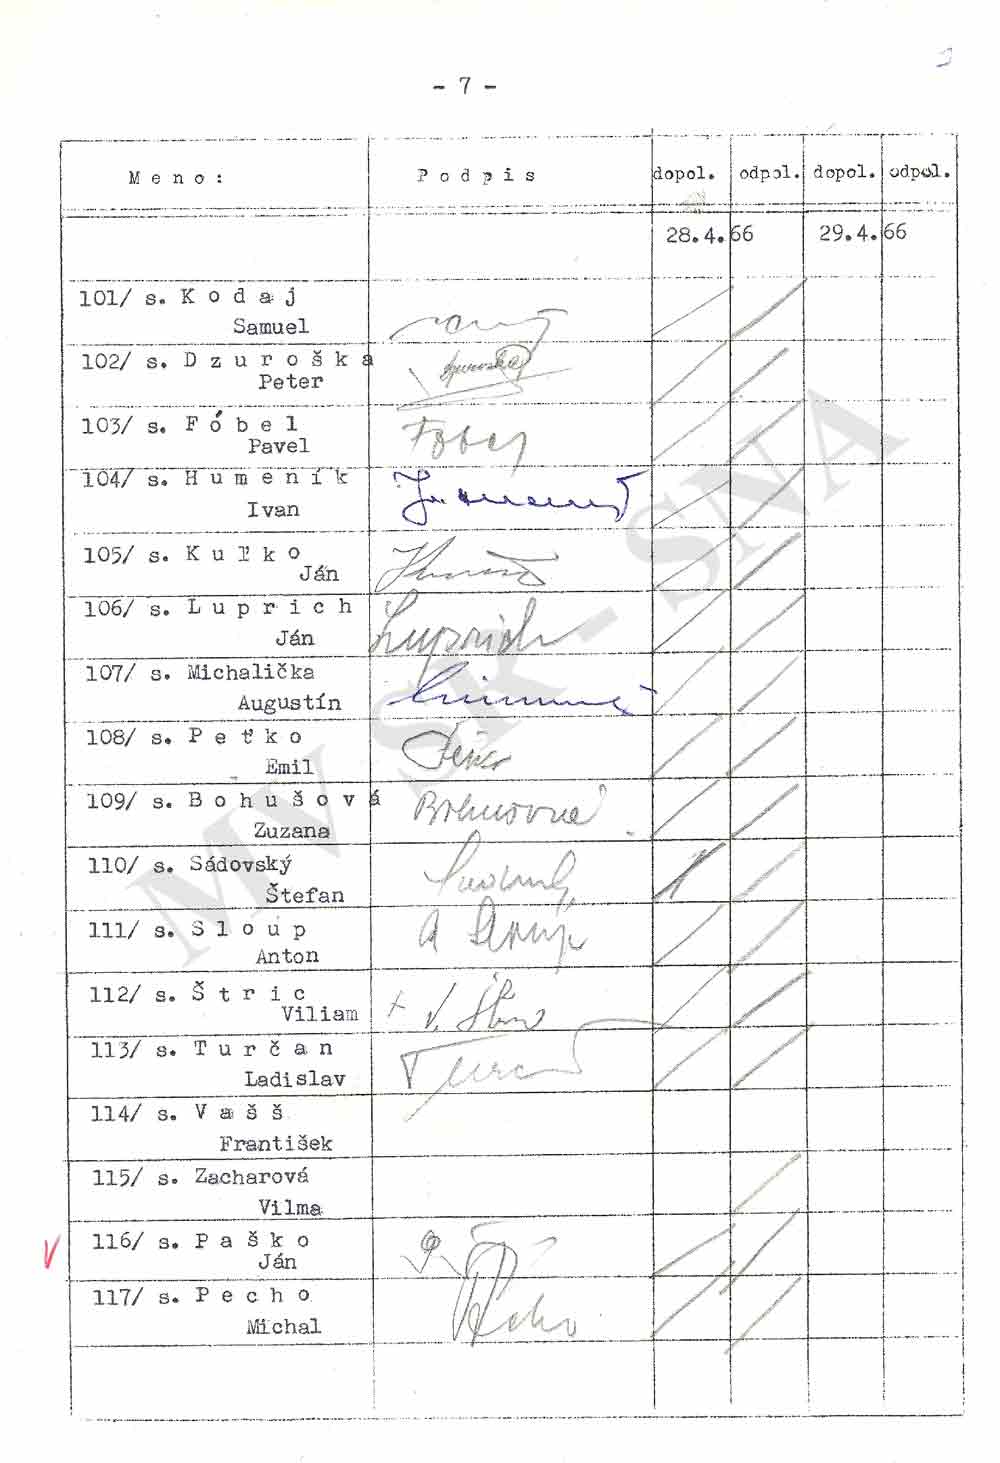 - 7 -
Meno: Podpis dopol. odpol. dopol. odpol.
28.4.66 29.4.66
101/ s. Kodaj
Samuel
102/ s. Dzuroška
Peter
103/ s. Fóbel
Pavel Fobel
104/ s. Humeník
Ivan
105/ s. Kuľko
Ján
106/ s. Luprich
Ján Luprich
107/ s. Michalička
Augustín
108/ s. Peťko
Emil
109/ s. Bohušová
Zuzana
110/ s. Sádovský
Štefan
111/ s. Sloúp
Anton
112/ s. Štric
Viliam
113/ s. Turčan
Ladislav
114/ s. Vašš
František
115/ s. Zacharová
Vilma
116/ s. Paško
Ján
117/ s. Pecho
Michal
MV SR - SNA